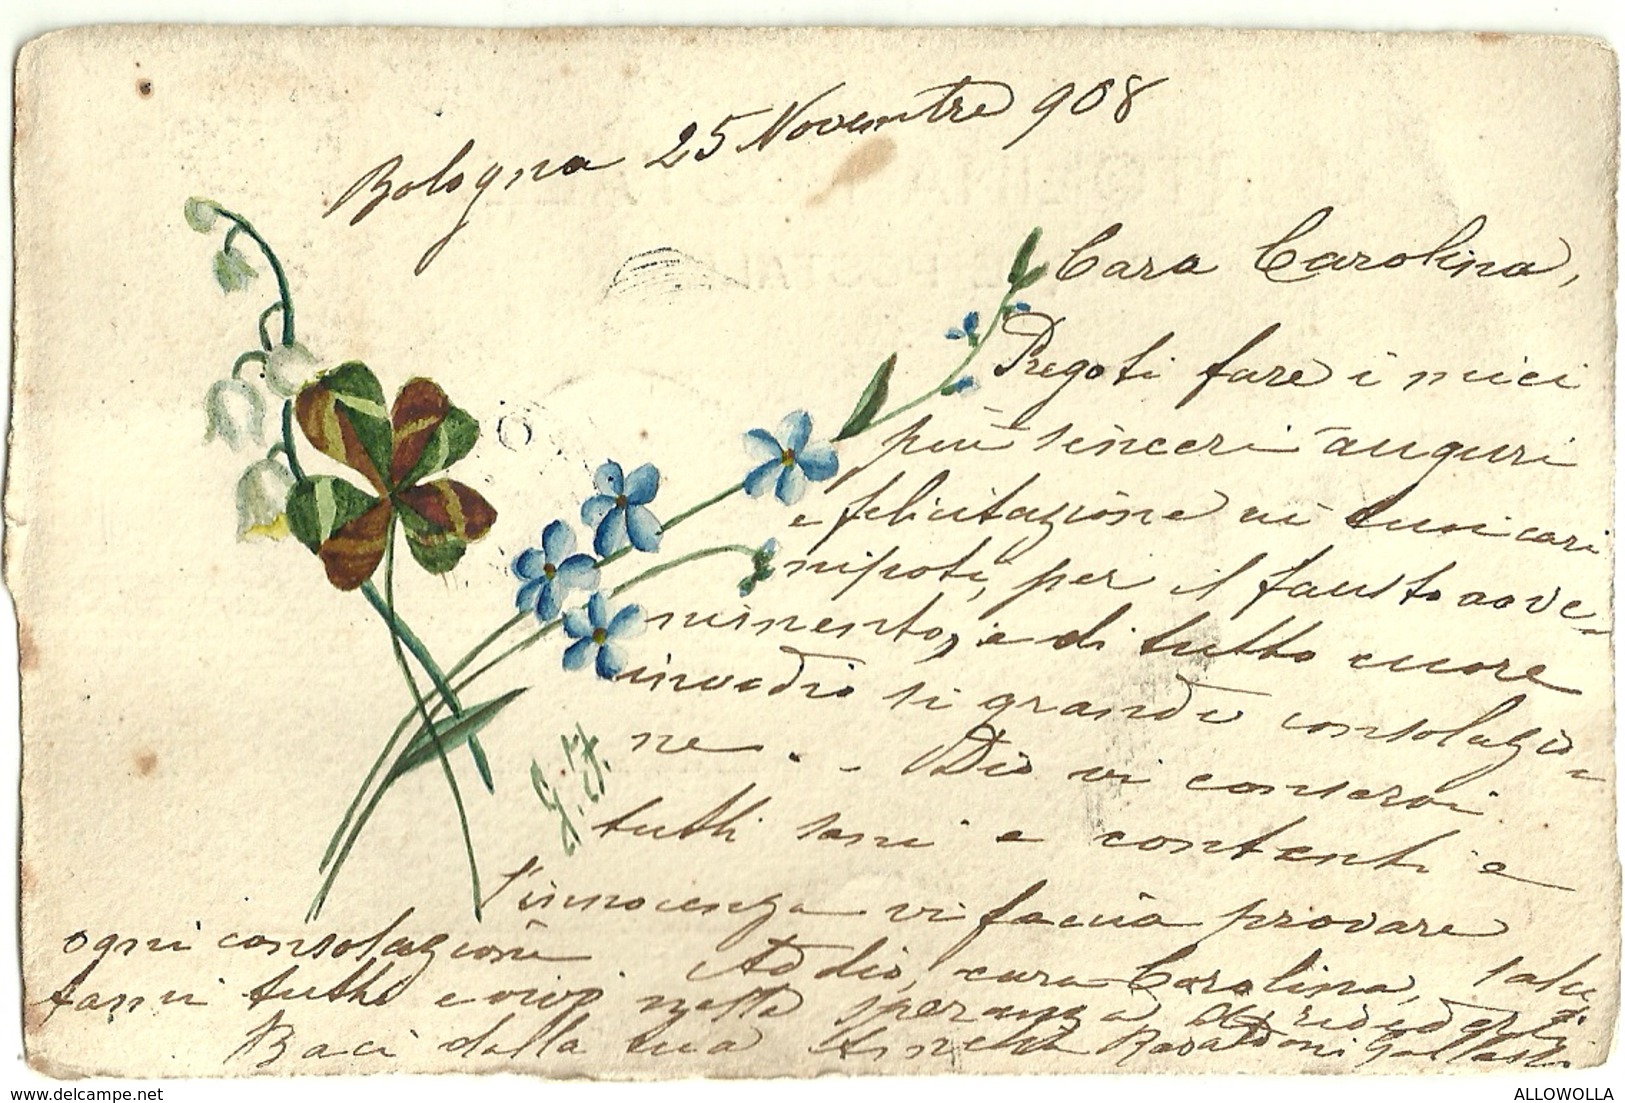 Bologna 25 Novembre 908
Cara Carolina,
Pregoti fare i miei
più sinceri auguri
e felicitazione ai tuoi cari
nipoti, per il fausto avve-
nimento, e di tutto cuore
invidio si grande consolazio-
ne. - Dio vi conservi
G. F.
tutti sani e contenti e
l'innocenza vi faccia provare
ogni consolazione. Addio, cara Carolina, salu
tami tutti e vivo nella speranza di rivederti
Baci dalla tua
www.delcampe.net
ALLOWOLLA